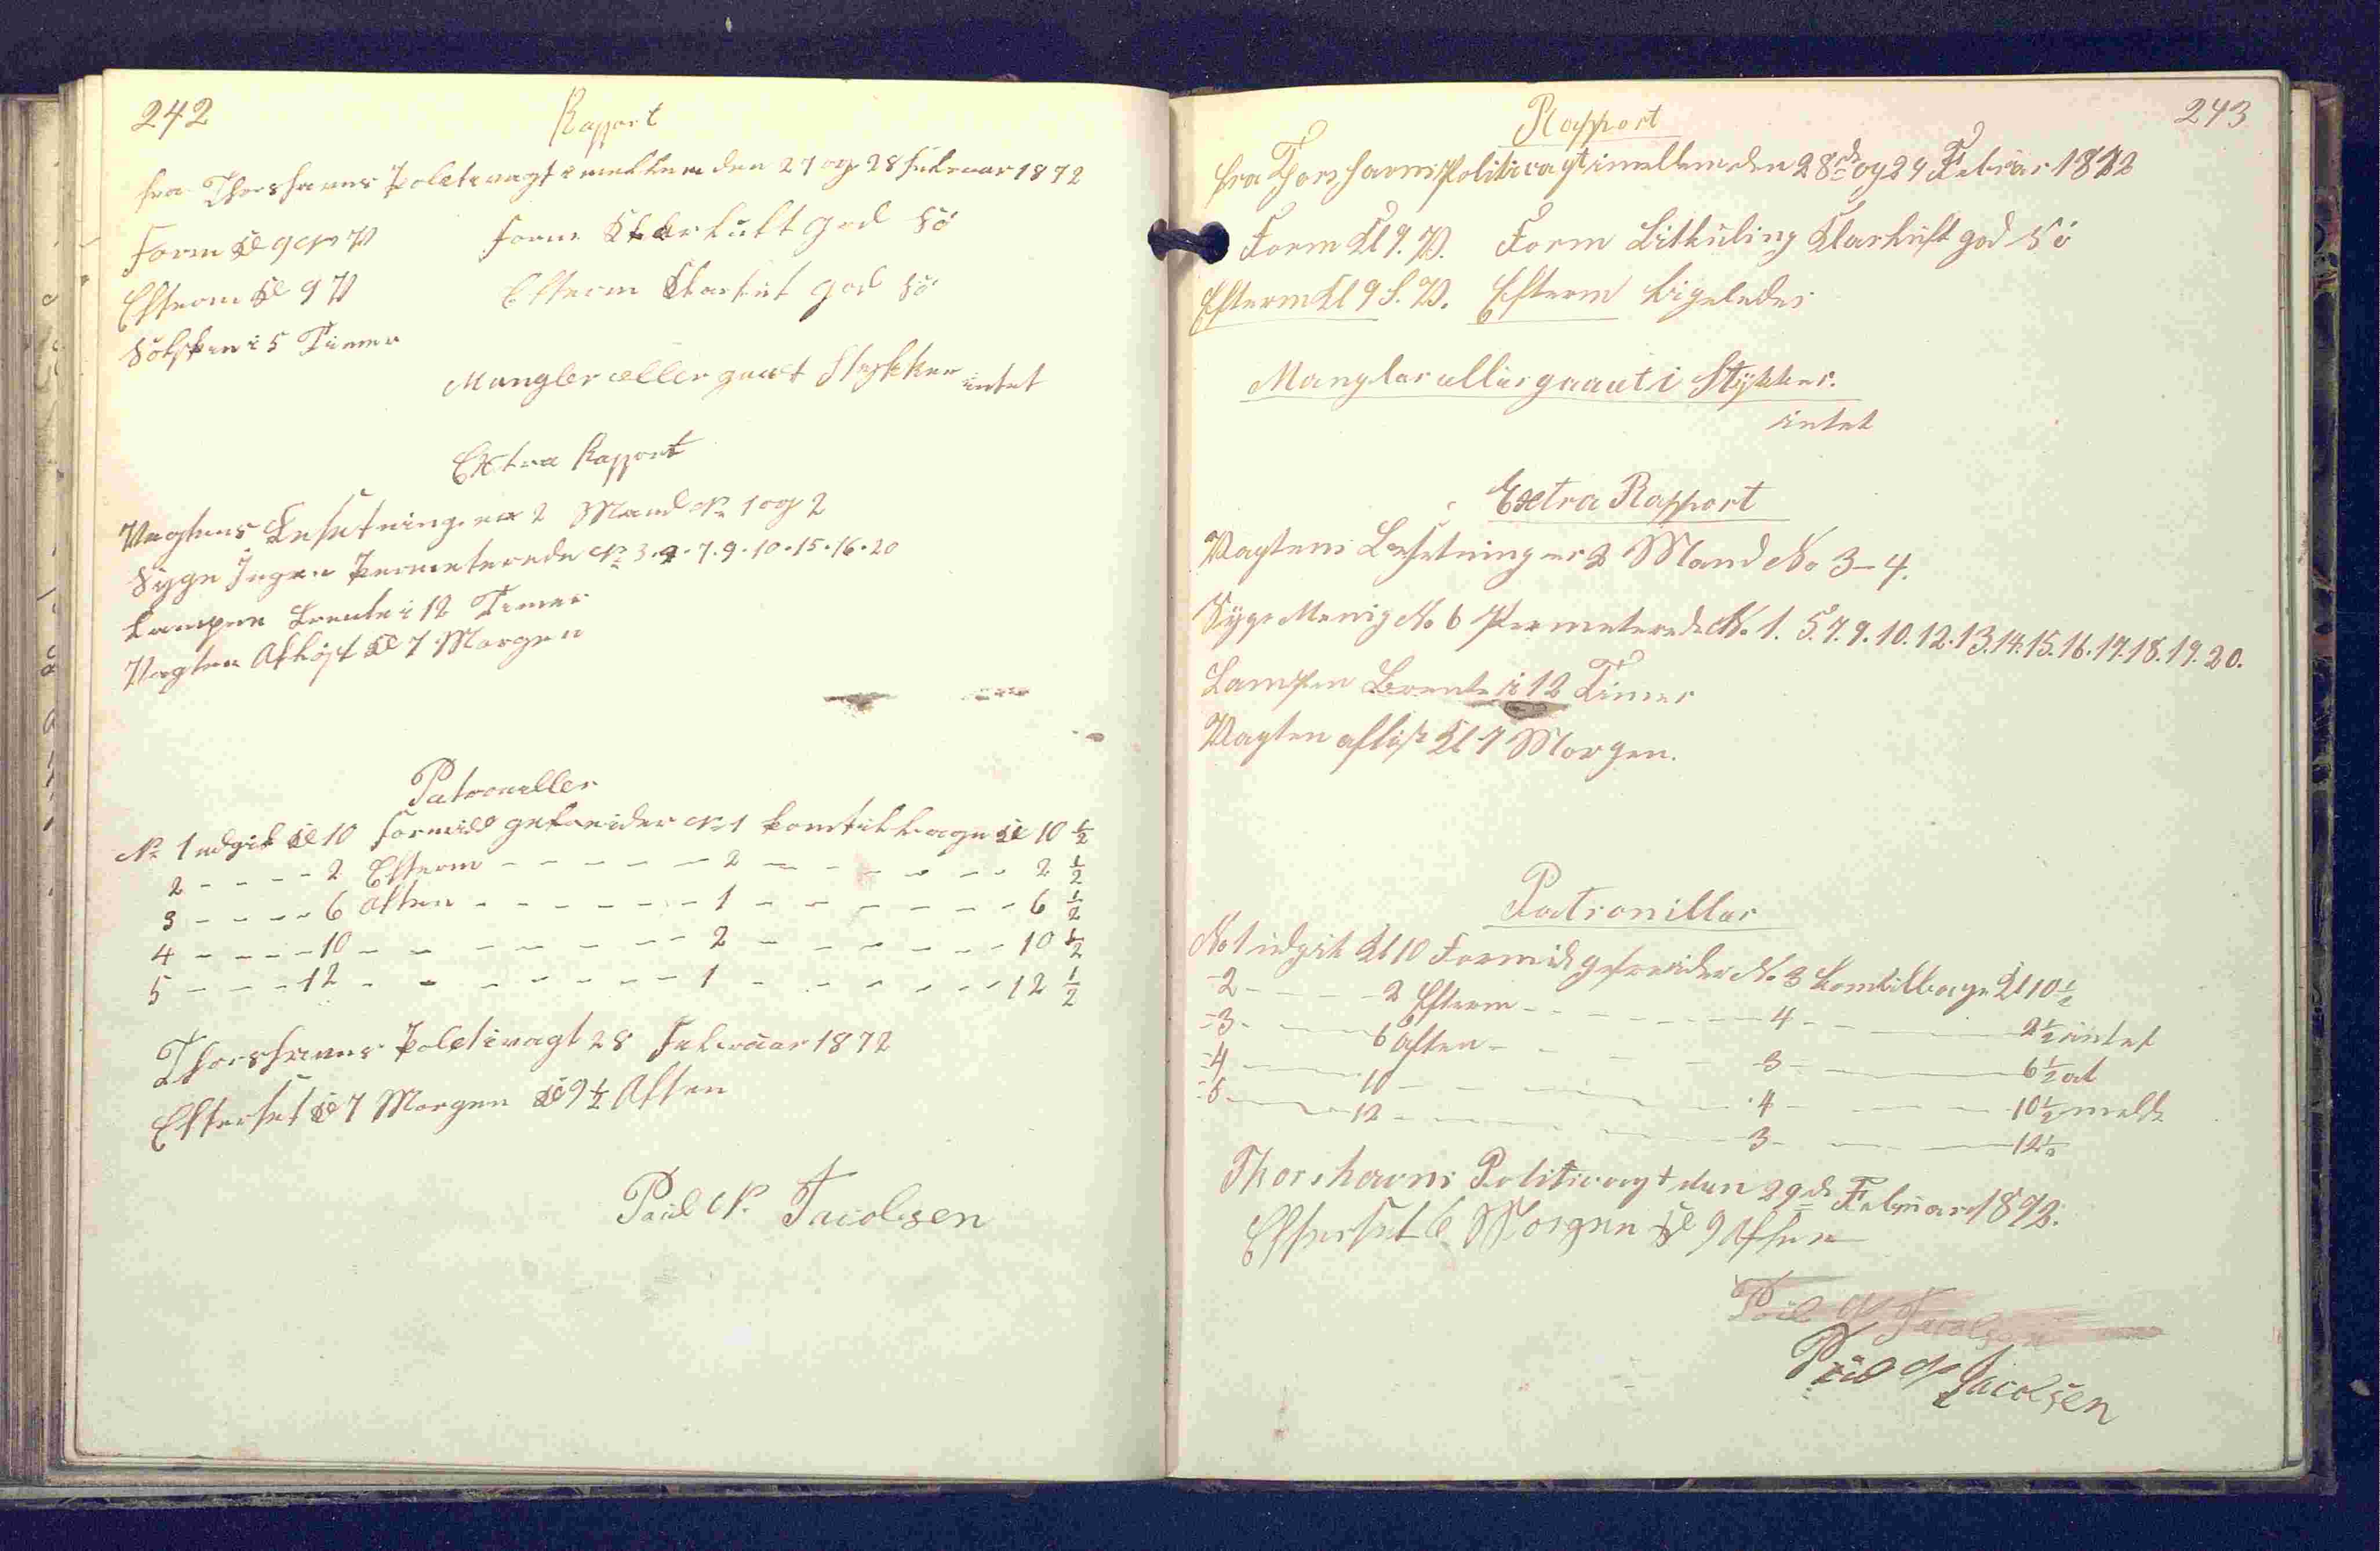 242
Rapport
fra Thorshavns Poletivagt imellem den 27 og 28 Februar 1872
Form Kl 9 NV
Form Klarluft god Sö
Efterm Kl 9 V
Efterm Klarluft god Sö
Solskin i 5 Timer
Mangler eller gaaet Stykker intet
Extra Rapport
Vagtens Besetning er 2 Mand No 1 og 2
Syge Ingen Permeterede No 3. 4. 7. 9. 10. 15. 16. 20
Lampen Brente i 12 Timer
Vagten Aflöst Kl 7 Morgen
Patroueller
No 1 udgik Kl 10 Formid gefreider No 1 kom tilbage Kl 10 1/2
2 - - - - 2 Efterm - - - - - - 2 - - - - - - 2 1/2
3 - - - - 6 Aften - - - - - - 1 - - - - - - 6 1/2
4 - - - - 10 - - - - - - - 2 - - - - - - 10 1/2
5 - - - - 12 - - - - - - - 1 - - - - - - 12 1/2
Thorshavns Poletivagt 28 Februar 1872
Efterset Kl 7 Morgen Kl 9 1/2 Aften
Poul N. Jacobsen
243
Rapport
fra Thorshavns Politivagt imellem den 28de og 29 Februar 1872
Form Kl 9. V. Form Litkuling Klarluft god Sö
Efterm Kl 9 S. V. Efterm Ligeledes
Mangler eller gaaet i Stykker.
intet
Extra Rapport
Vagtens Besetning er 2 Mand No 3-4.
Syge Menig No 6 Permeterede No. 1. 5. 7. 9. 10. 12. 13. 14. 15. 16. 17. 18. 19. 20.
Lampen Brente i 12 Timer
Vagten aflöst Kl 7 Morgen.
Patroniller
No 1 udgik Kl 10 Formid gefreider No. 3 kom tilbage Kl 10 1/2
-2 - - - 2 Efterm - - - - - 4 - - - 2 1/2 intet
-3 - - - 6 Aften - - - - - 3 - - - 6 1/2 at
-4 - - - 10 - - - - - 4 - - - 10 1/2 melde
-5 - - - 12 - - - - - 3 - - - 12 1/2
Thorshavns Politivagt den 29de Februar 1872.
Efterset 6 Morgen Kl 9 Aften
Poul N Jacobsen
Poul N Jacobsen